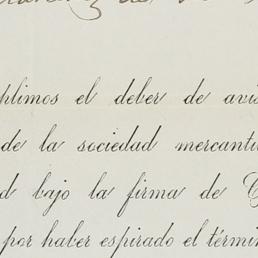 plimos el deber de avis
de la sociedad mercanti
d bajo la firma de C
por haber espirado el términ